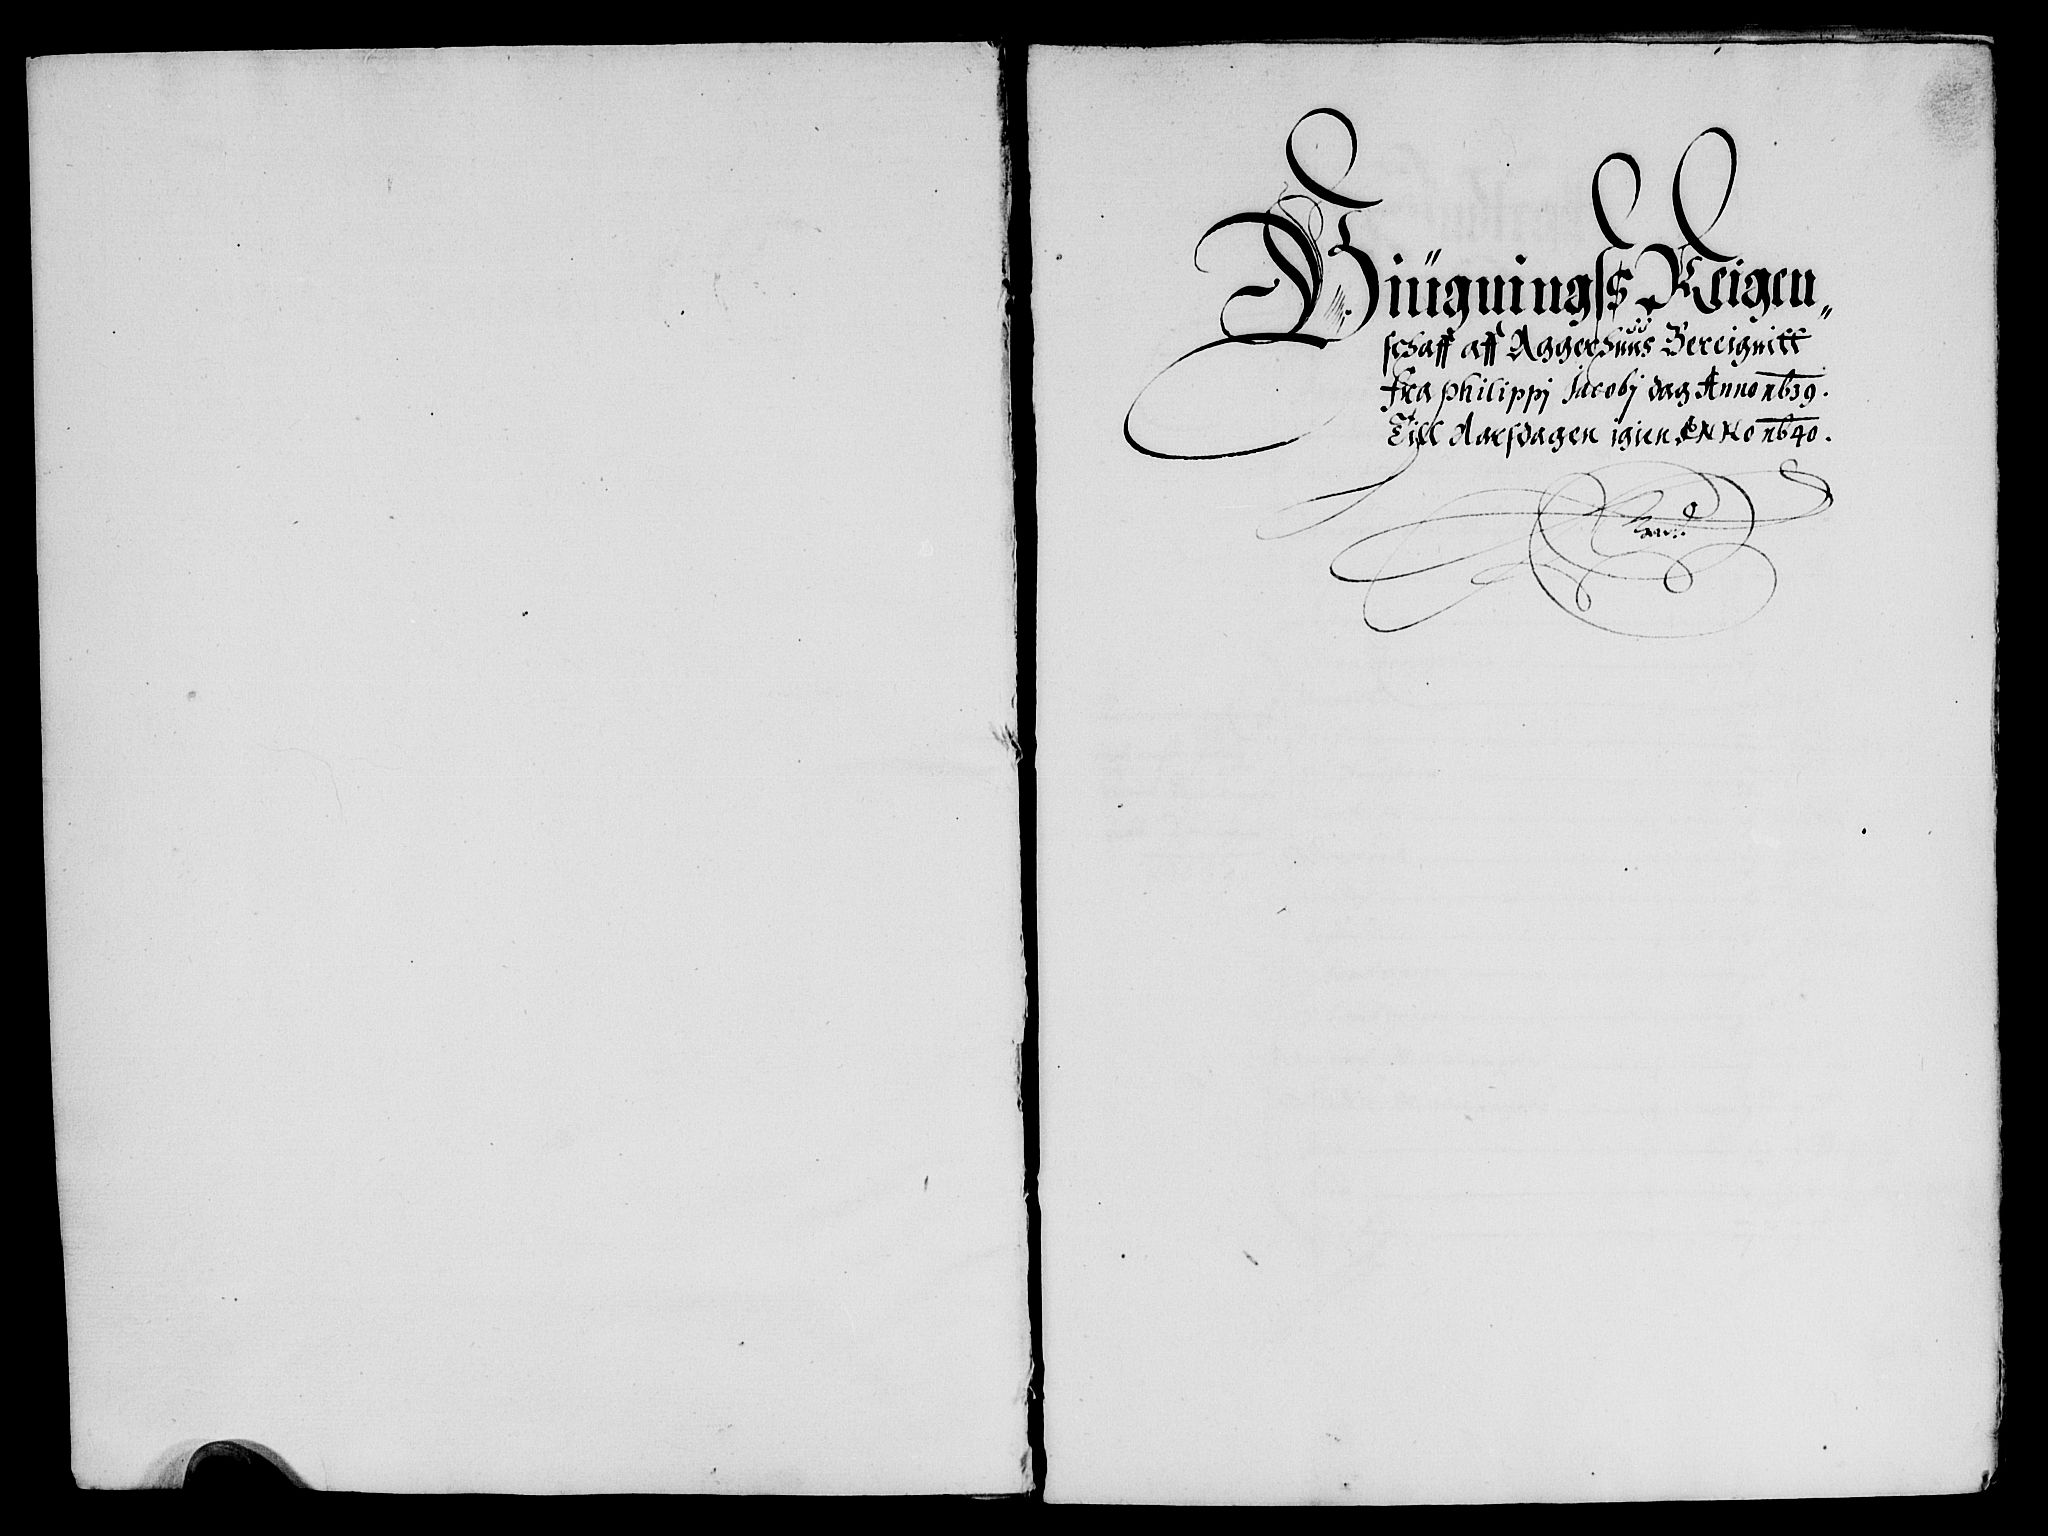 Biügningss Reigen„
schaff aff Aggershuus Bereignitt
fra philippj Jacobj dag Anno 1639.
Till Aarsdagen igien ANNO 1640.